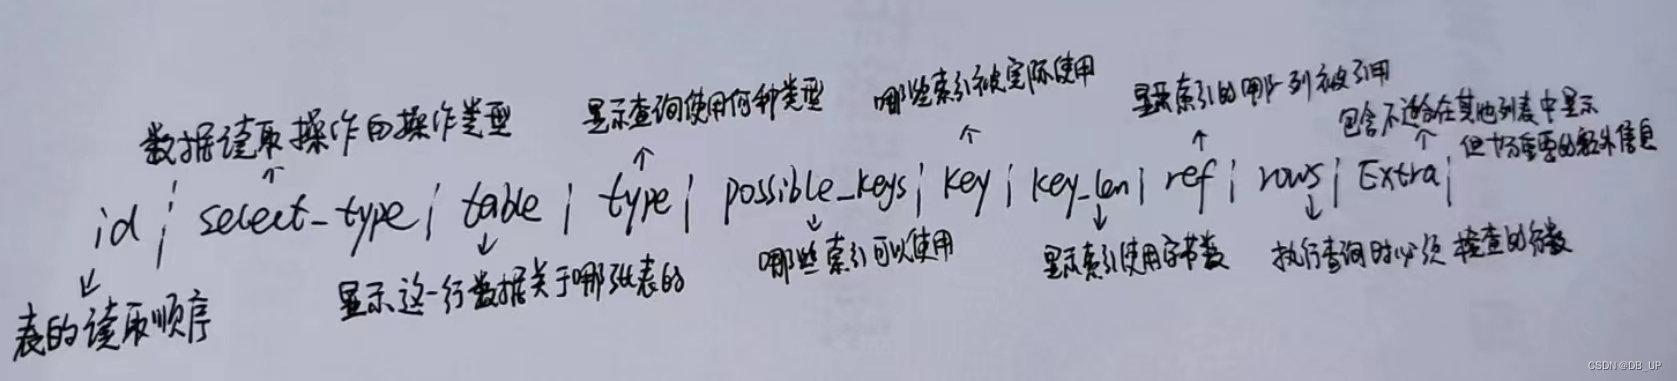 数据读取操作的操作类型
显示查询使用何种类型
哪些索引被实际使用
显示索引的哪个列被引用
包含不适合在其他列表中显示
但十分重要的额外信息
id | select_type | table | type | possible_keys | key | key_len | ref | rows | Extra |
表的读取顺序
显示这一行数据关于哪张表的
哪些索引可以使用
显示索引使用字节数
执行查询时必须检查的行数
CSDN @DB_UP